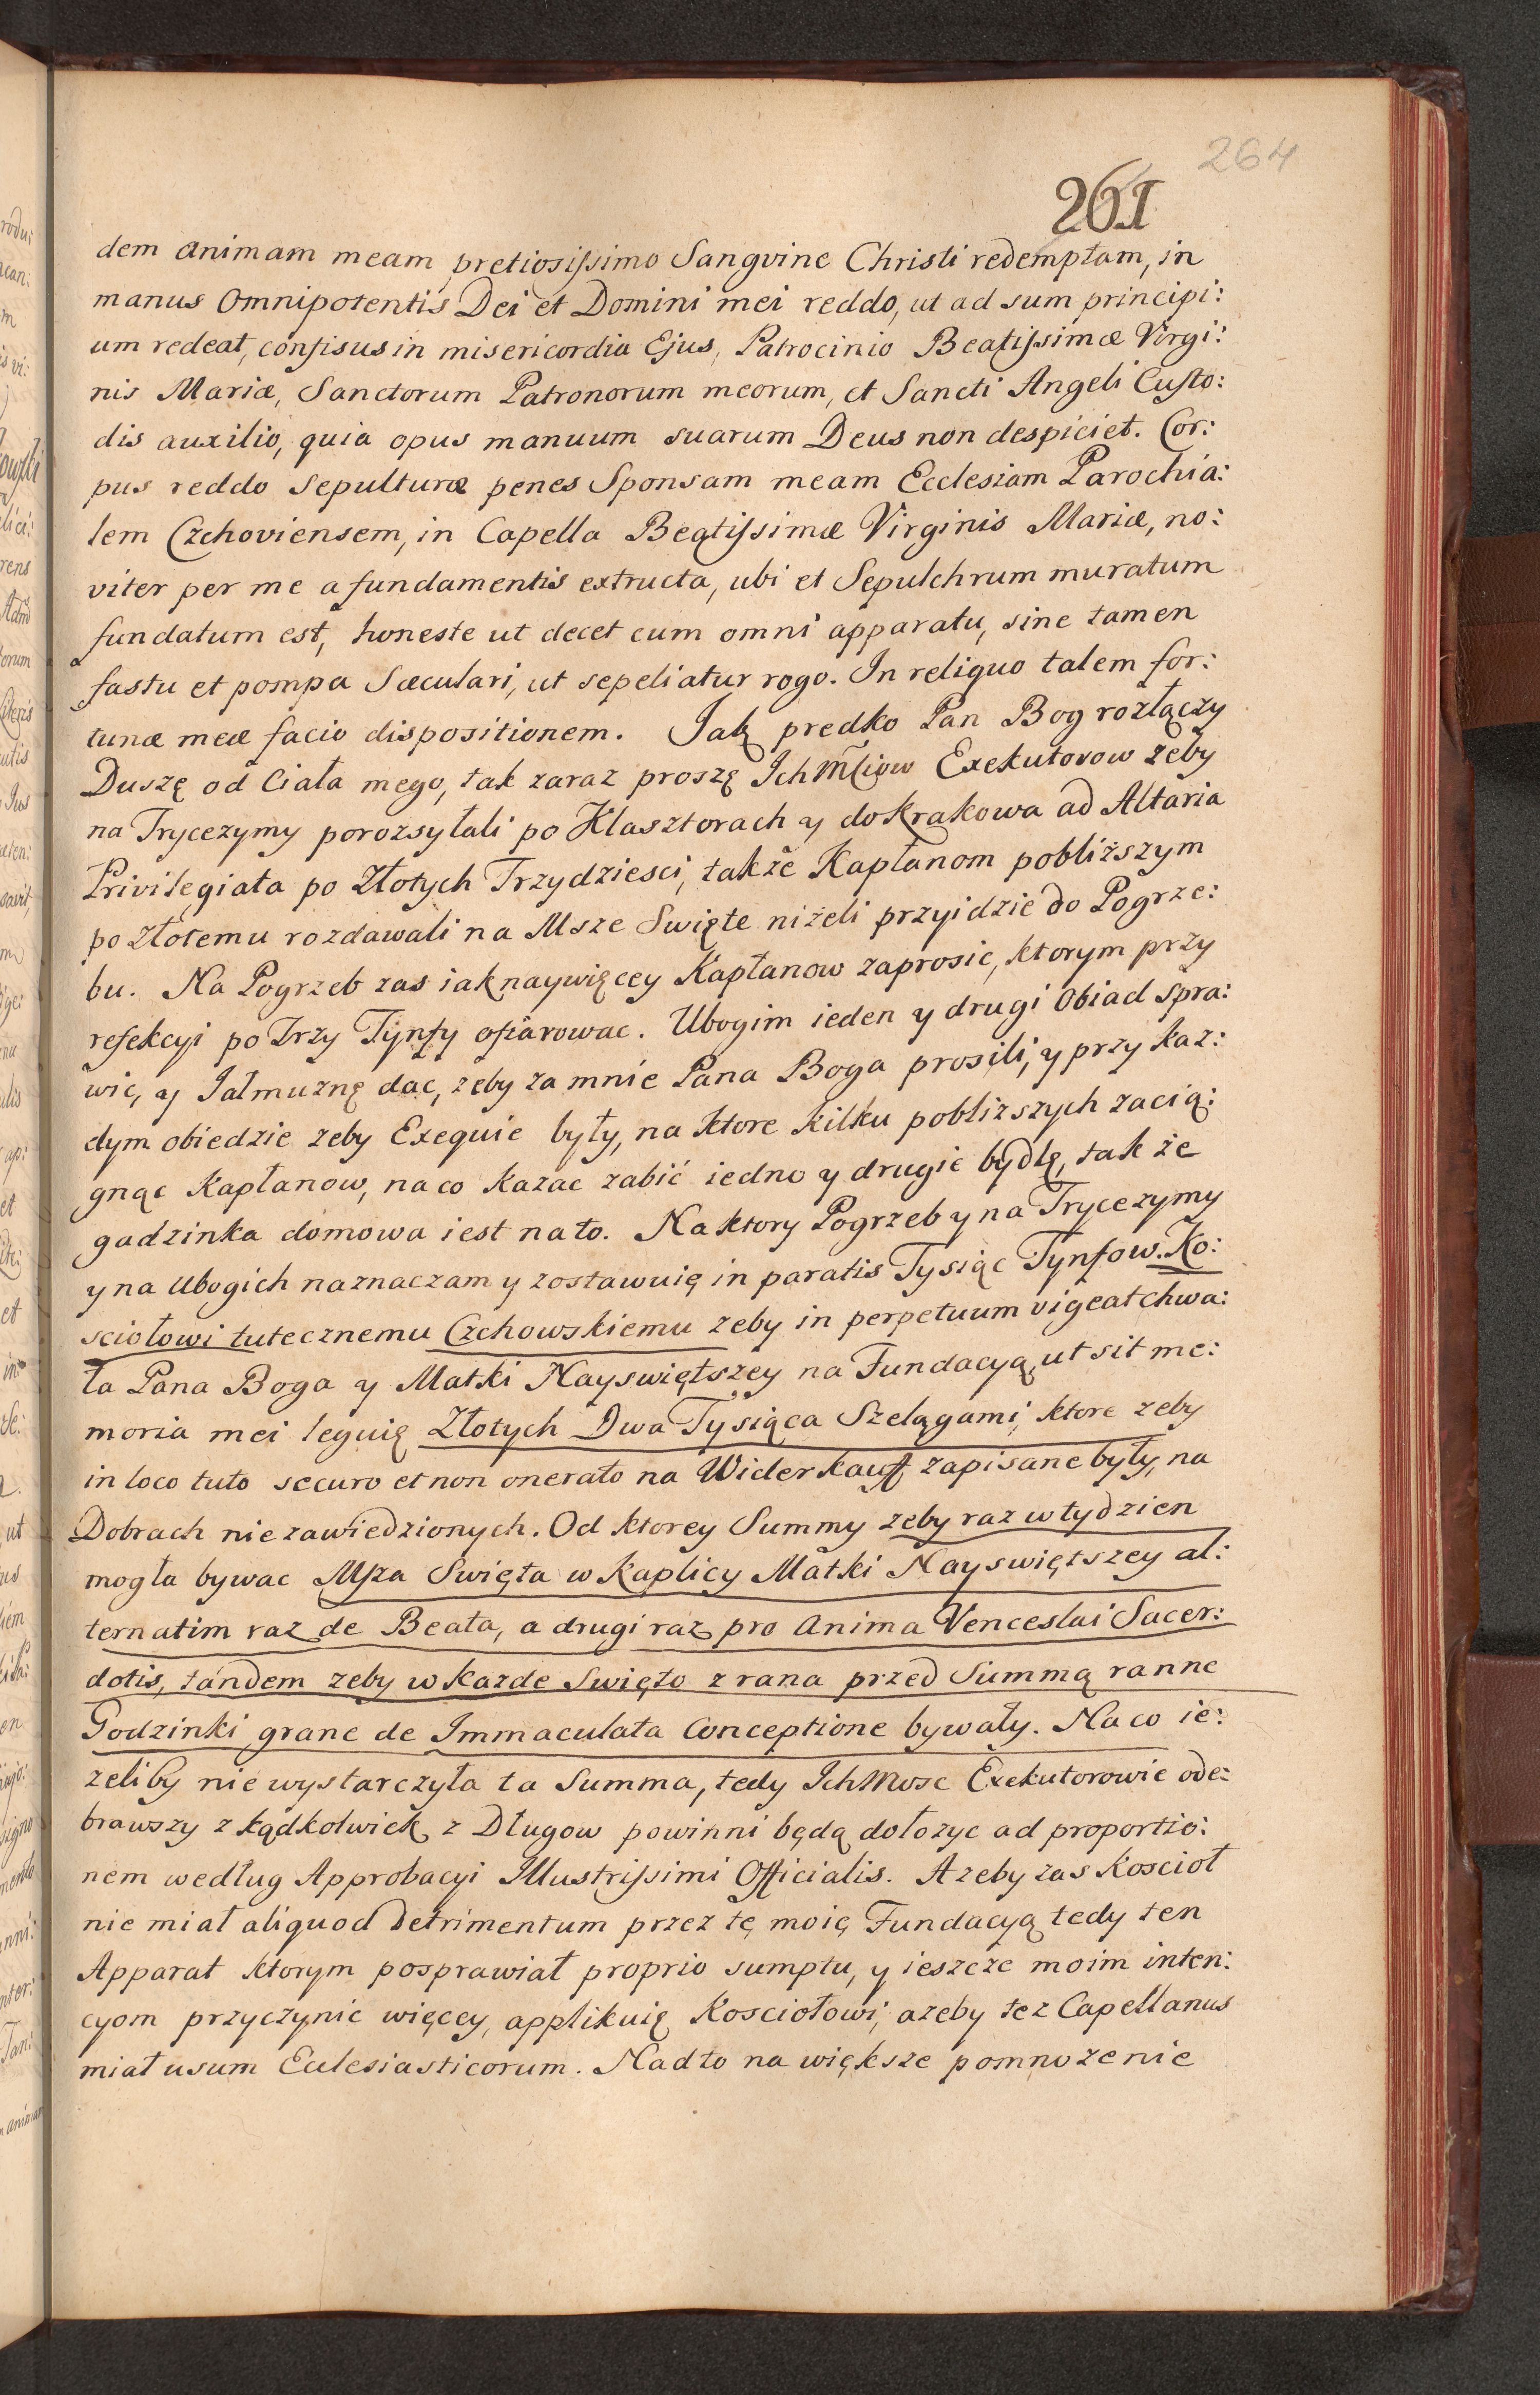 264
261
dem animam meam pretiosissimo Sangvine Christi redemptam, in
manus Omnipotentis Dei et Domini mei reddo, ut ad sum principi:
um redeat, confisus in misericordia Ejus, Patrocinio Beatissimæ Virgi:
nis Mariæ, Sanctorum Patronorum meorum, et Sancti Angeli Custo:
dis auxilio, quia opus manuum suarum Deus non despiciet. Cor:
pus reddo Sepulturæ penes Sponsam meam Ecclesiam Parochia:
lem Czchoviensem, in Capella Beatissimæ Virginis Mariæ, no:
viter per me a fundamentis extructa, ubi et Sepulchrum muratum
fundatum est, honeste ut decet cum omni apparatu, sine tamen
fastu et pompa Sæculari, ut sepeliatur rogo. In reliquo talem for:
tunæ meæ facio dispositionem. Jak predko Pan Bog rozłączy
Duszę od Ciała mego, tak zaraz proszę Ich Mciow Exekutorow zeby
na Tryceżymy porozsyłali po Klasztorach y do Krakowa ad Altaria
Privilegiata po Złotych Trzydziesci, także Kapłanom pobliższym
po złotemu rozdawali na Msze Swięte niżeli przyidzie do Pogrze:
bu. Na Pogrzeb zas iak naywięcey Kapłanow zaprosic, ktorym przy
refekcyi po Trzy Tynfy ofiarowac. Ubogim ieden y drugi Obiad spra:
wic, y Jałmuznę dac, zeby za mnie Pana Boga prosili, y przy kaz:
dym obiedzie zeby Exequie były, na ktore kilku pobliższych zacią:
gnąc Kapłanow, na co kazac zabić iedno y drugie bydlę, tak że
gadzinka domowa iest na to. Na ktory Pogrzeb y na Trycezymy
y na Ubogich naznaczam y zostawuię in paratis Tysiąc Tynfow. Ko:
sciołowi tutecznemu Czchowskiemu zeby in perpetuum vigeat chwa:
ła Pana Boga y Matki Nayswiętszey na Fundacyą, ut sit me:
moria mei leguię Złotych Dwa Tysiąca Szelągami, ktore zeby
in loco tuto securo et non onerato na Widerkauf zapisane były, na
Dobrach niezawiedzionych. Od ktorey Summy zeby raz w tydzien
mogła bywac Msza Swięta w Kaplicy Matki Nayswiętszey al:
ternatim raz de Beata, a drugi raz pro Anima Venceslai Sacer:
dotis, tandem zeby w kazde Swięto z rana przed Summą ranne
Godzinki grane de Immaculata Conceptione bywały. Na co ie:
zeliby nie wystarczyła ta Summa, tedy Ich Mosc Exekutorowie ode:
brawszy z kądkolwiek z Długow powinni będą dołozyc ad proportio:
nem według Approbacyi Illustrissimi Officialis. A zeby zas Koscioł
nie miał aliquod Detrimentum przez tę moię Fundacyą tedy ten
Apparat ktorym posprawiał proprio sumptu, y ieszcze moim inten:
cyom przyczynic więcey, applikuię Kosciołowi, azeby tez Capellanus
miał usum Ecclesiasticorum. Nadto na większe pomnozenie